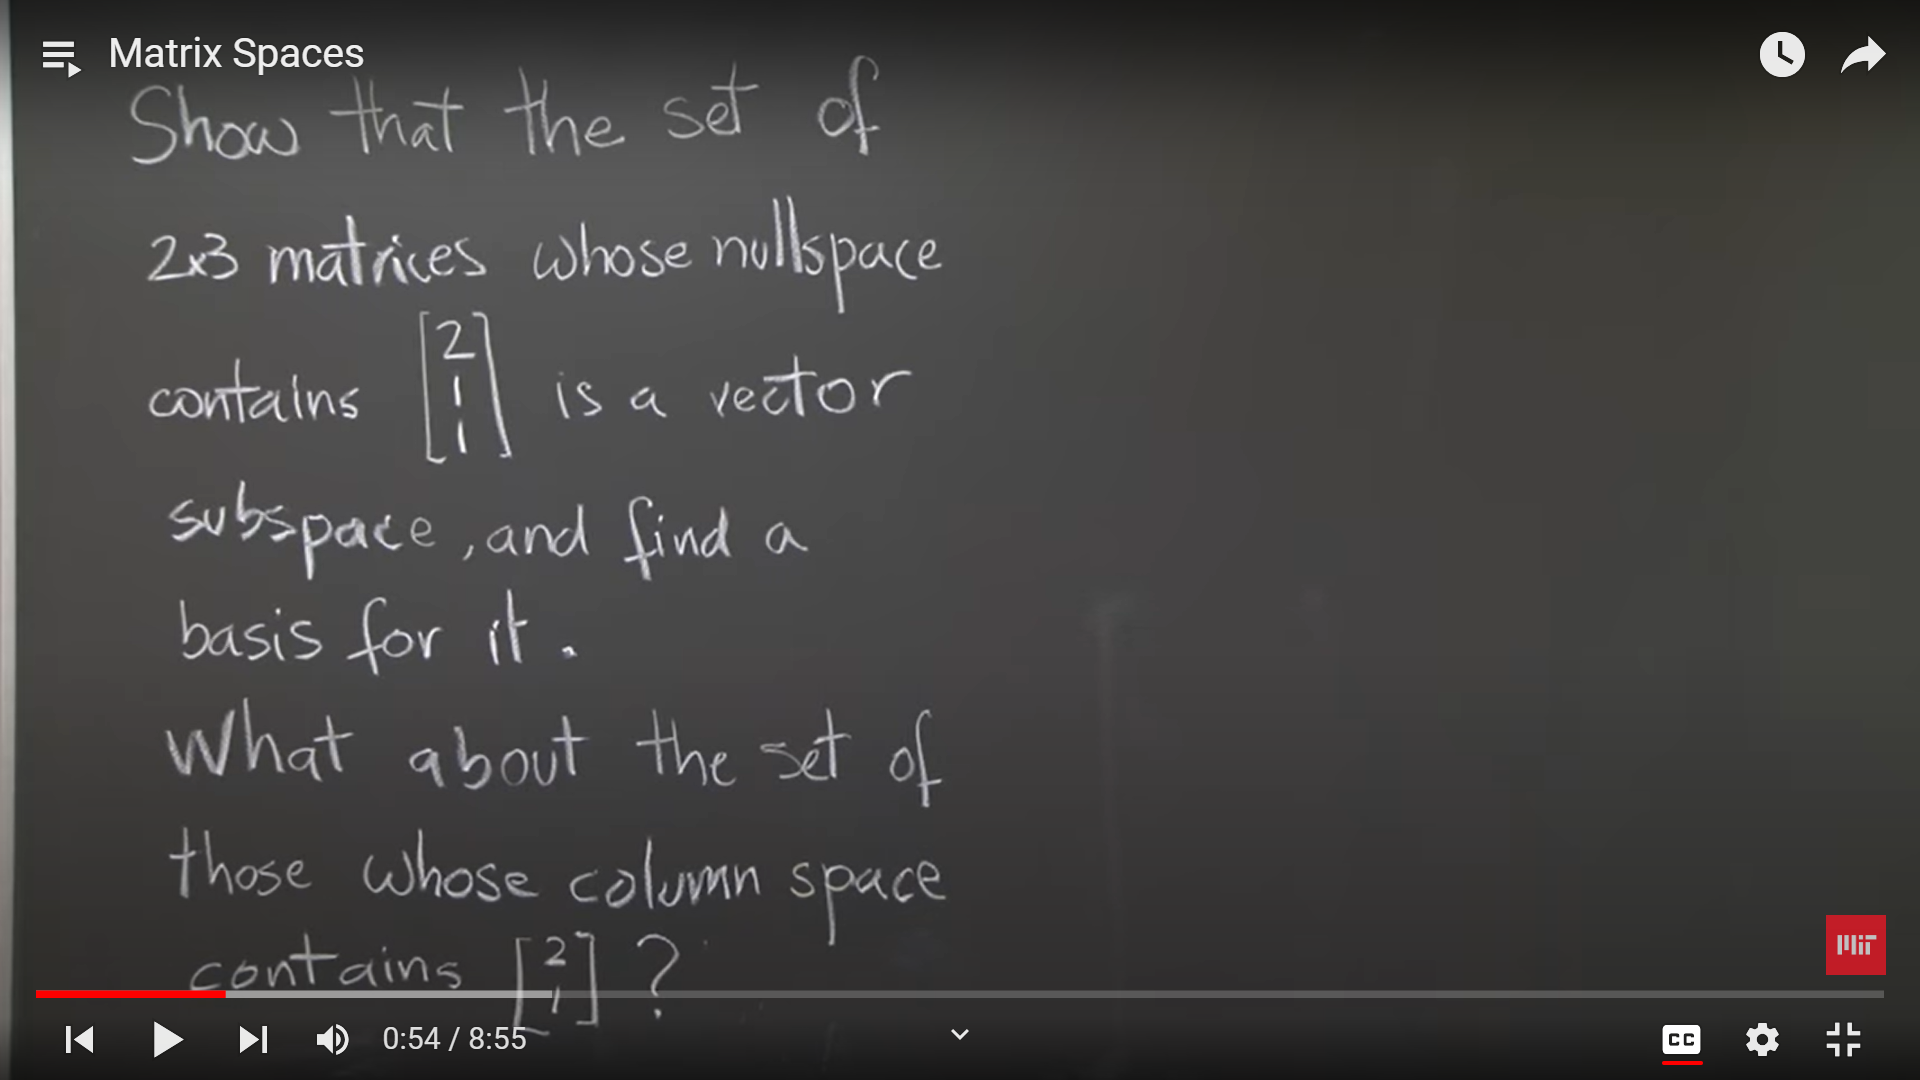 Matrix Spaces
Show that the set of
2x3 matrices whose nullspace
contains [2 1 1] is a vector
subspace, and find a
basis for it.
What about the set of
those whose column space
contains [2 1] ?
MIT
0:54 / 8:55
CC